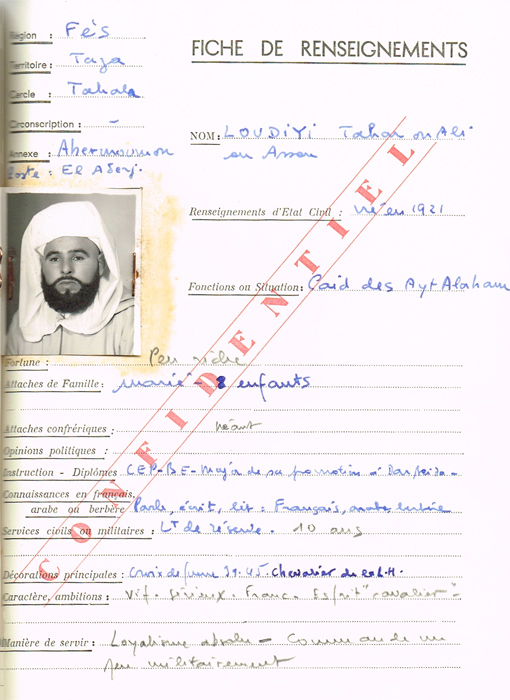 Région : Fès
FICHE DE RENSEIGNEMENTS
Territoire : Taza
Cercle : Tahala
Circonscription : -
NOM : LOUDIYI Tahar ou Ali
ou Assou
Annexe : Ahermoumou
Poste : El Aderj
Renseignements d'Etat Civil : né en 1921
Fonctions ou Situation : Caïd des Ayt Alaham
CONFIDENTIEL
Fortune : Peu riche
Attaches de Famille : marié - 8 enfants
Attaches confrériques : néant
Opinions politiques :
Instruction - Diplômes CEP-BE-Major de sa promotion à Dar Beida -
Connaissances en français,
arabe ou berbère Parle, écrit, lit : Français, arabe berbère
Services civils ou militaires : Lt de réserve - 10 ans
Décorations principales : Croix de guerre 39.45. Chevalier de la L.H.
Caractère, ambitions : Vif. Sérieux. Franc. Esprit "cavalier" -
Manière de servir : Loyalisme absolu - Commande un
peu militairement